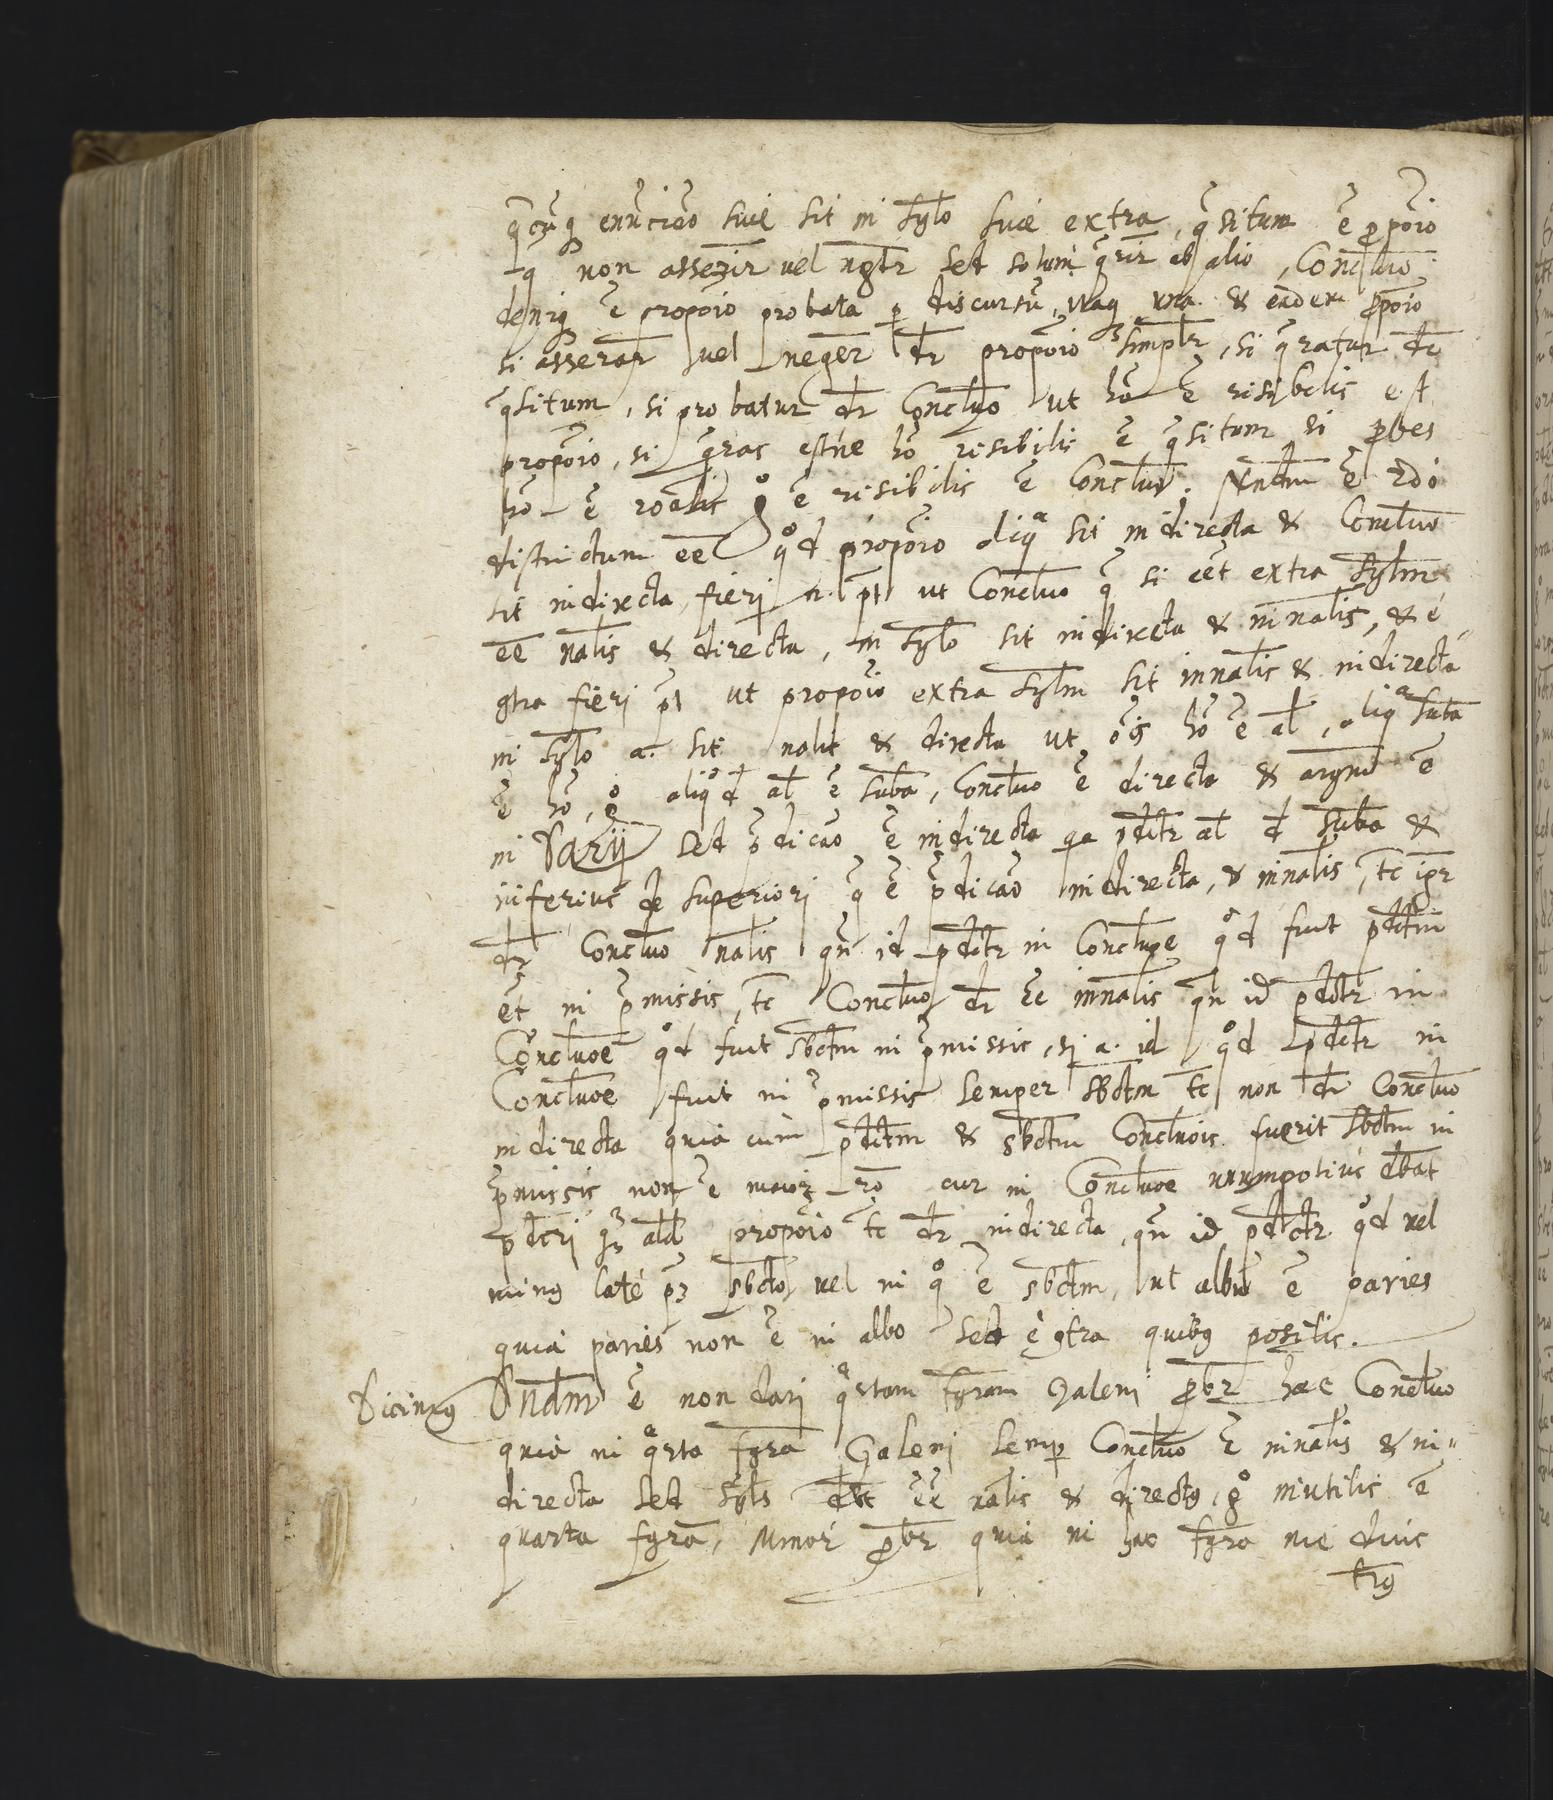 qcūq enūciāo siue sit in syllo siue extra, q̄situm ē ppōio
q̄ non asserir uel ngtr sed solum q̄rir ab alio, Concluō
deniq ē propōio probata p discursū, itaq una & eadem ppōio
si asserar̄ uel neger̄ dr̄ propōio simplr, si q̄ratur dr̄
q̄situm, si probatur dr̄ Concluō ut hō ē risibilis est
propōio, si q̄ras estne hō risibilis ē q̄situm si pbes
hō ē roālis g° ē risibilis ē Concluō. Nndm ē 2do
distinctum ee q°d propōio aliqa sit indirecta & Concluo
sit indirecta, fieri n. pt ut Concluo q̄ si eet extra syllm
ee nalis & directa, in syllo sit indirecta & innalis, & ē
gtra fieri pt ut propōio extra syllm sit innalis & indirecta
in syllo a. sit nalis & directa ut ōis hō ē al, aliqa suba
ē hō, g° aliq°d al ē suba, Concluo ē directa & argum ē
in Darij sed p̄dicāo ē indirecta qa pdctr al d suba &
inferius de superiori q̄ ē p̄dicāo indirecta, & innalis, tc igr
dr̄ Concluo nalis qn id pdctr in Concluoe q°d fuit pdctm
et in p̄missis, tc Concluo dr ee innalis qn id pdctr in
Concluoe q°d fuit sbctm in p̄missis, si a. id q°d pdctr in
Concluoe fuit in p̄missis semper sbctm tc non dr Concluo
indirecta quia cum pdctm & sbctm Concluois fuerit sbctm in
p̄missis non ē maior rō cur in Concluoe unum potius dbat
pdcri q̄ ald propōio tc dr indirecta, qn id pdctr q°d uel
minq latē p̄ sbcto uel in q° ē sbctm, ut albū ē paries
quia paries non ē in albo sed ē gtra quibq positis.
Dicimq Dndm ē non dari q̄rtam fgram Galeni pbr haec Concluo
quia in q̄rta fgra Galeni semp Concluo ē innalis & in-
directa sed syls dbt ee nalis & directq, g° inutilis ē
quarta fgra, Minor pbr quia in hac fgra me dius
trq